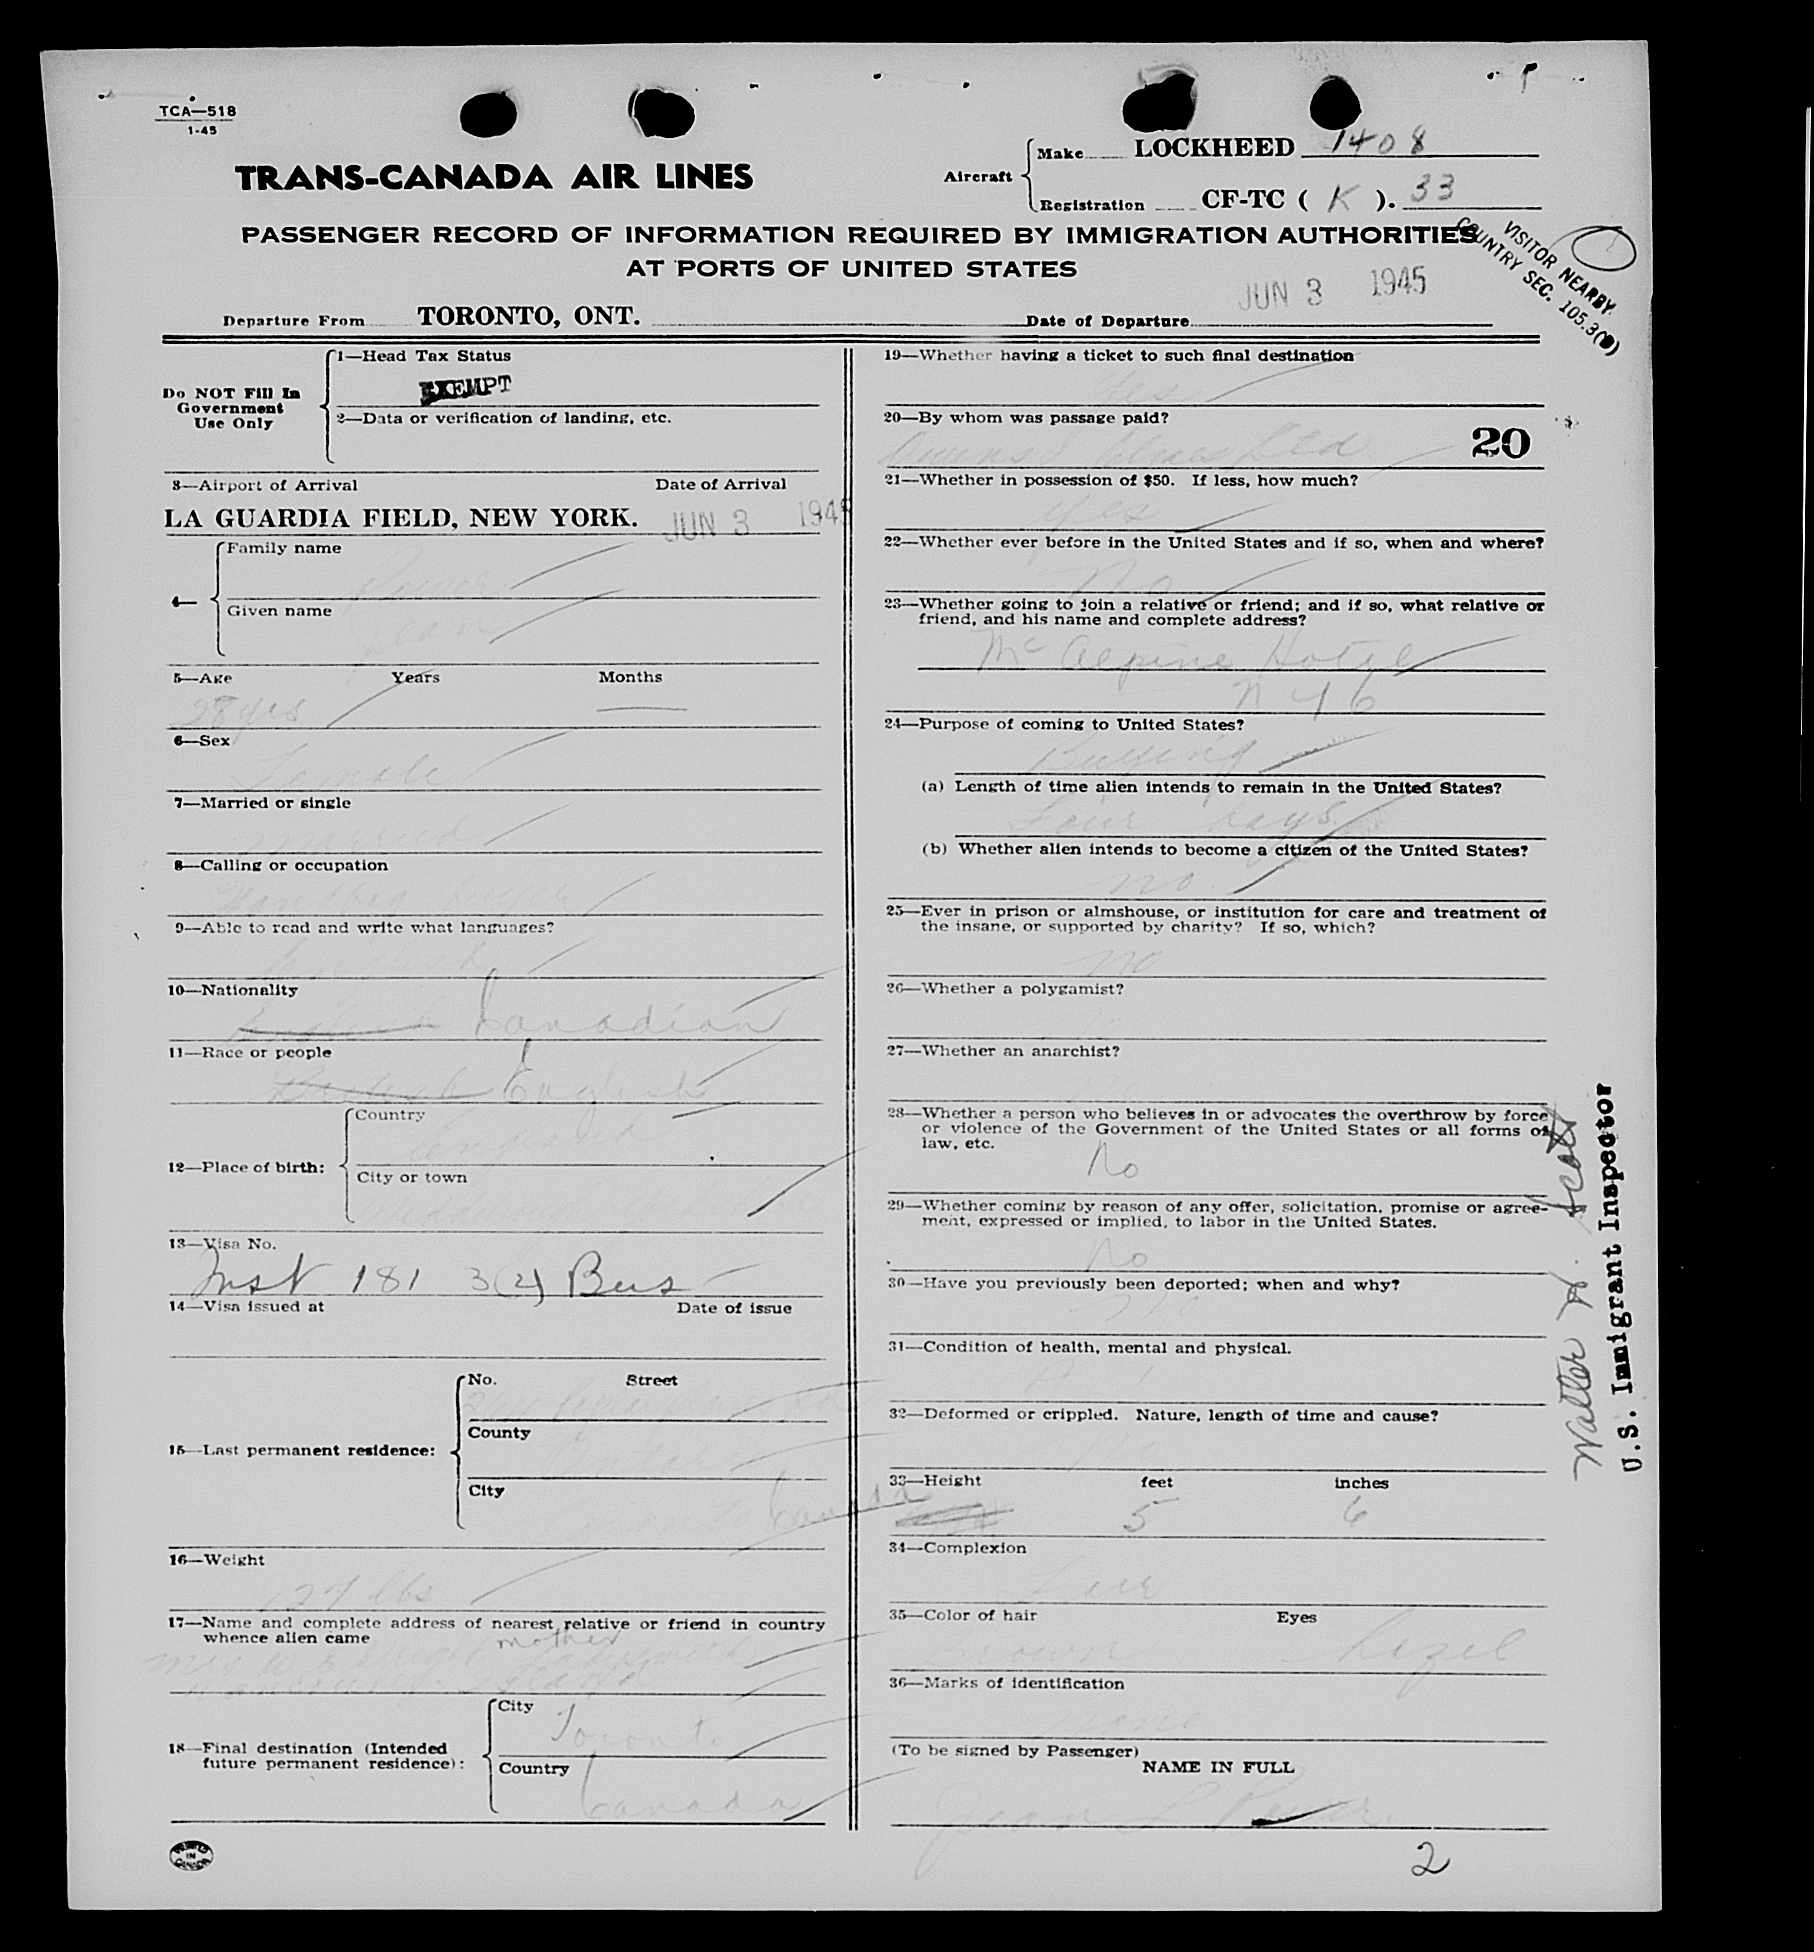 TCA—518
1-45
TRANS-CANADA AIR LINES
Aircraft
Make LOCKHEED 1408
Registration CF-TC ( K ). 33
PASSENGER RECORD OF INFORMATION REQUIRED BY IMMIGRATION AUTHORITIES
AT PORTS OF UNITED STATES
VISITOR NEARBY
COUNTRY SEC. 105.3(
JUN 3 1945
Departure From TORONTO, ONT. Date of Departure
Do NOT Fill In
Government
Use Only
1—Head Tax Status
EXEMPT
2—Data or verification of landing, etc.
3—Airport of Arrival Date of Arrival
LA GUARDIA FIELD, NEW YORK. JUN 3 1945
4—
Family name
Given name
Jean
5—Age Years Months
28 yrs
6—Sex
Female
7—Married or single
Married
8—Calling or occupation
Handbag buyer
9—Able to read and write what languages?
English
10—Nationality
Canadian
11—Race or people
British English
12—Place of birth:
Country
England
City or town
13—Visa No.
Inst 181 3(2) Bus
14—Visa issued at Date of issue
15—Last permanent residence:
No. Street
County
City
Toronto Canada
16—Weight
127 lbs
17—Name and complete address of nearest relative or friend in country
whence alien came
mother
18—Final destination (Intended
future permanent residence):
City
Toronto
Country
Canada
PRINTED
IN
CANADA
19—Whether having a ticket to such final destination
Yes
20—By whom was passage paid?
20
21—Whether in possession of $50. If less, how much?
Yes
22—Whether ever before in the United States and if so, when and where?
No
23—Whether going to join a relative or friend; and if so, what relative or
friend, and his name and complete address?
Mc Alpine Hotel
N Y 6
24—Purpose of coming to United States?
Buying
(a) Length of time alien intends to remain in the United States?
Four days
(b) Whether alien intends to become a citizen of the United States?
no
25—Ever in prison or almshouse, or institution for care and treatment of
the insane, or supported by charity? If so, which?
no
26—Whether a polygamist?
27—Whether an anarchist?
28—Whether a person who believes in or advocates the overthrow by force
or violence of the Government of the United States or all forms of
law, etc.
No
29—Whether coming by reason of any offer, solicitation, promise or agree-
ment, expressed or implied, to labor in the United States.
No
30—Have you previously been deported; when and why?
No
31—Condition of health, mental and physical.
A 1
32—Deformed or crippled. Nature, length of time and cause?
33—Height feet inches
5 6
34—Complexion
Fair
35—Color of hair Eyes
Brown hazel
36—Marks of identification
none
(To be signed by Passenger)
NAME IN FULL
Jean L
2
Walter H. Scott
U.S. Immigrant Inspector